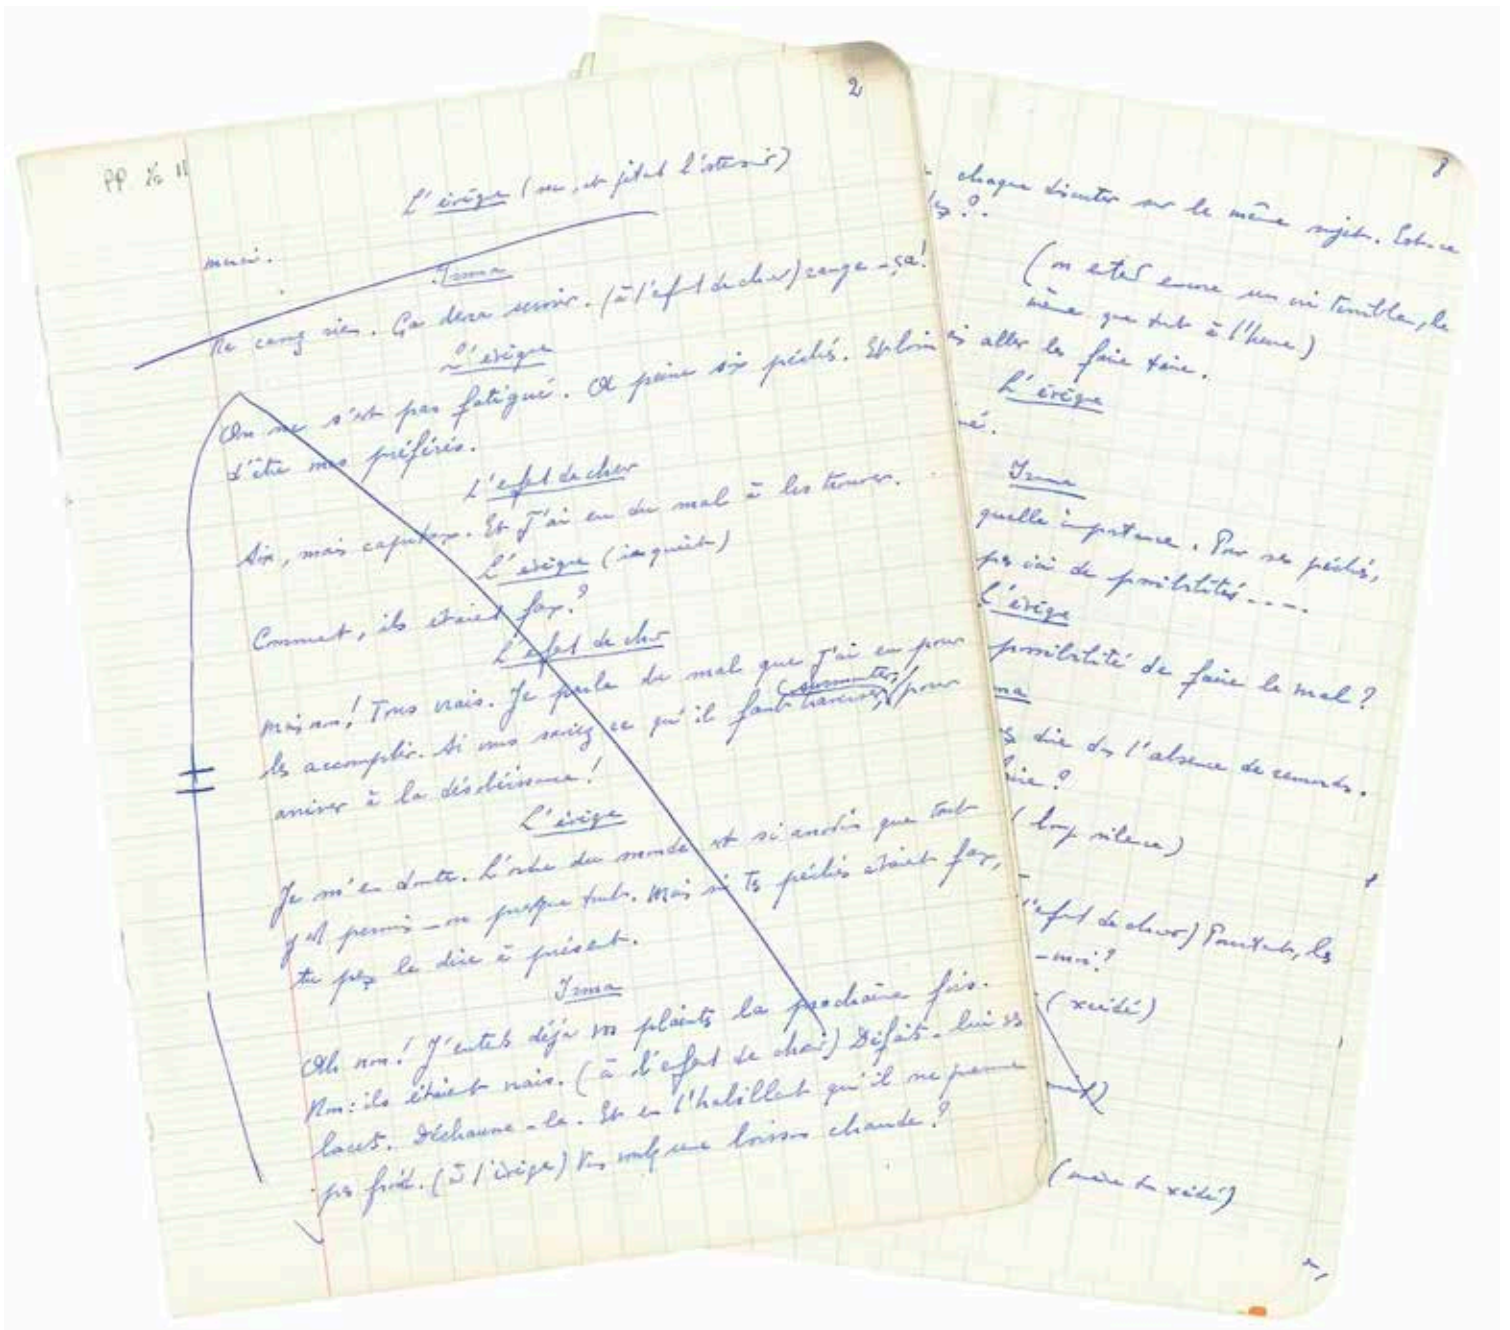 2
PP
L'évêque
merci.
Irma
Ne casse rien. Ça devra servir. (à l'enfant de chœur) range-ça!
L'évêque
On ne s'est pas fatigué. A peine six péchés. Et loin
d'être mes préférés.
L'enfant de chœur
Six, mais capitaux. Et j'ai eu du mal à les trouver.
L'évêque (inquiet)
Comment, ils étaient faux?
L'enfant de chœur
Mais non! Tous vrais. Je parle du mal que j'ai eu pour
les accomplir. Si vous saviez ce qu'il faut traverser, surmonter, pour
arriver à la désobéissance!
L'évêque
Je m'en doute. L'ordre du monde est si anodin que tout
y est permis - ou presque tout. Mais si tes péchés étaient faux,
tu peux le dire à présent.
Irma
Ah non! J'entends déjà vos plaintes la prochaine fois.
Non: ils étaient vrais. (à l'enfant de chœur) Défais-lui ses
lacets. Déchausse-le. Et en l'habillant qu'il ne prenne
pas froid. (à l'évêque) Vous voulez une boisson chaude?
8
chaque discuter sur le même sujet. Est-ce
?
(on entend encore un cri terrible, le
même que tout à l'heure)
aller les faire taire.
L'évêque
Irma
quelle importance. Pour ses péchés,
pas ici de possibilités....
L'évêque
possibilité de faire le mal?
dire dans l'absence de remords.
(long silence)
l'enfant de chœur) Pourtant, les
-moi?
(excédé)